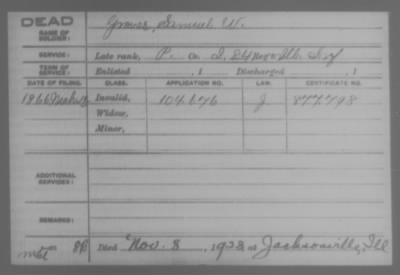 DEAD
NAME OF SOLDIER: Graves, Samuel W.
SERVICE: Late rank, P. Co. I, 24 Reg't Ill. Inf
TERM OF SERVICE: Enlisted , 1 Discharged , 1
DATE OF FILING. CLASS. APPLICATION NO. LAW. CERTIFICATE NO.
1866 Invalid, 104.646 J 877.798
Widow,
Minor,
ADDITIONAL SERVICES:
REMARKS:
Died Nov. 8, 1928 at Jacksonville, Ill